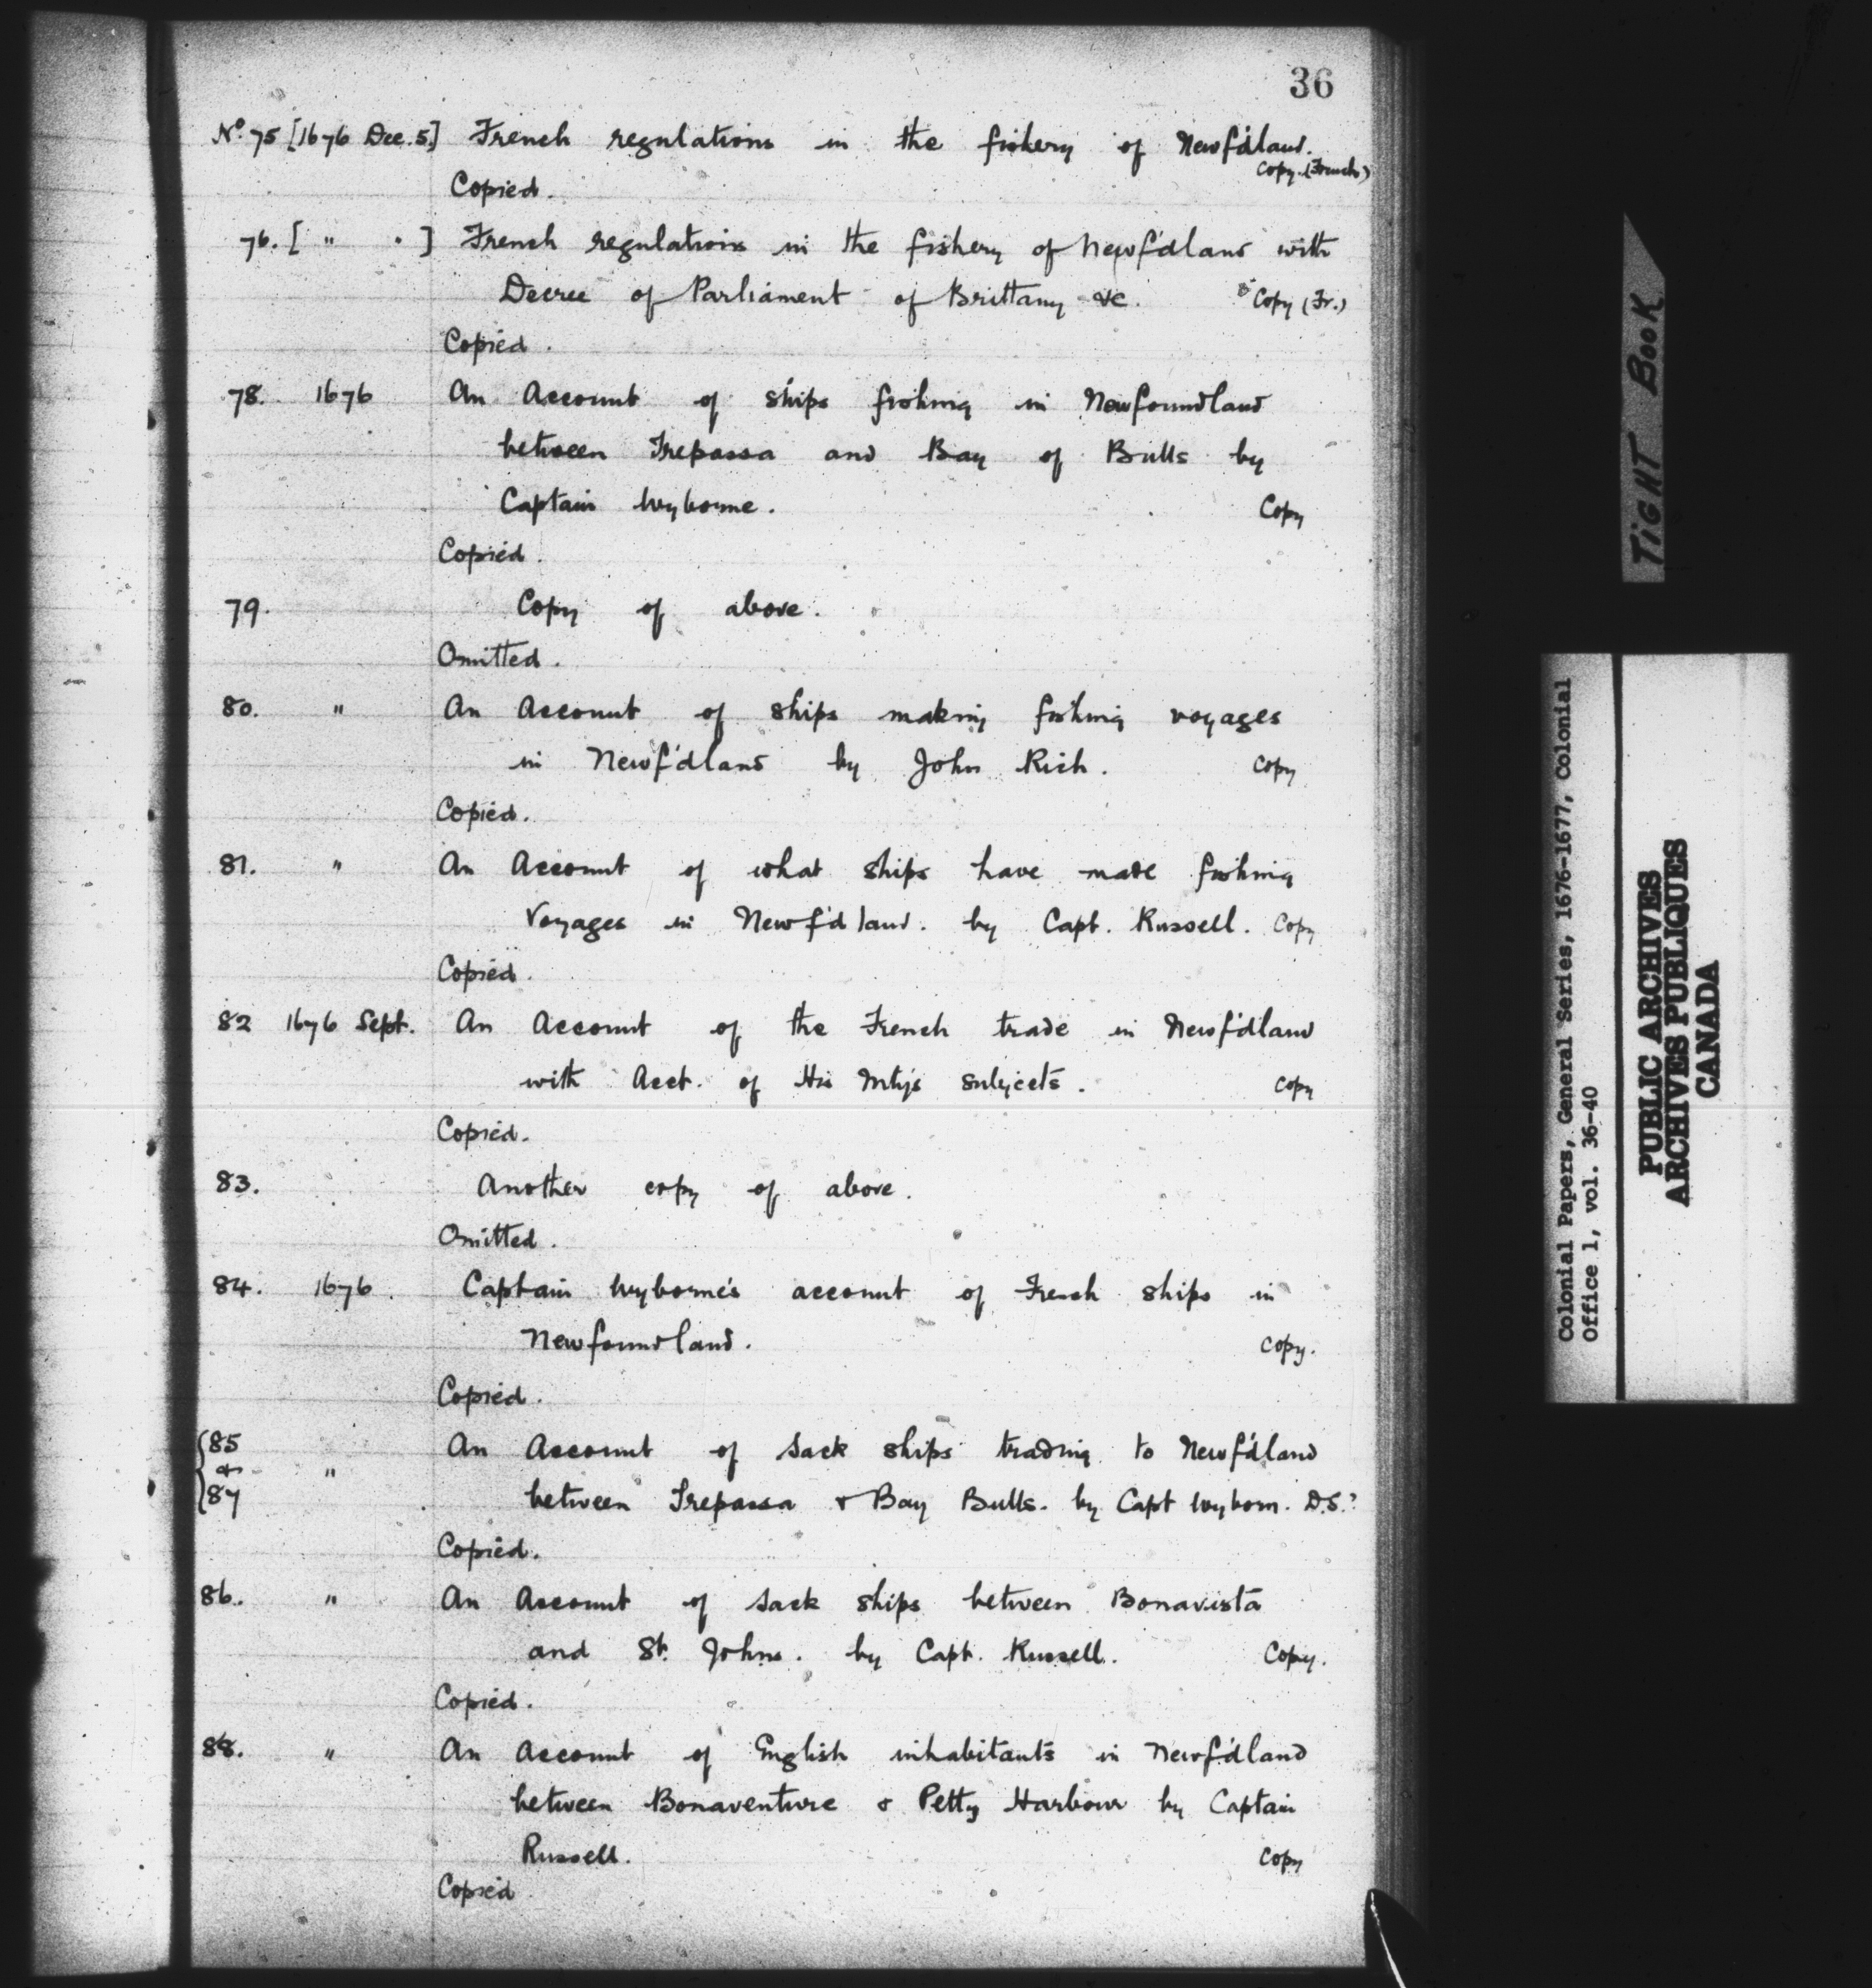 36
No. 75 [1676 Dec. 5.] French regulations in the fishery of Newf'dland.
Copy. (French)
Copied.
76. [ " . ] French regulations in the fishery of Newf'dland with
Decree of Parliament of Brittany &c. Copy (Fr.)
Copied.
78. 1676 An Account of ships fishing in Newfoundland
between Trepassa and Bay of Bulls by
Captain Wyborne. Copy
Copied.
79. Copy of above.
Omitted.
80. " An Account of ships making fishing voyages
in Newf'dland by John Rich. Copy
Copied.
81. " An Account of what ships have made fishing
Voyages in Newf'dland. by Capt. Russell. Copy
Copied.
82 1676 Sept. An Account of the French trade in Newf'dland
with Acct. of His Mty's subjects. Copy
Copied.
83. Another copy of above.
Omitted.
84. 1676. Captain Wyborne's account of French ships in
Newfoundland. Copy.
Copied.
{85
& "
{87
An Account of Sack ships trading to Newf'dland
between Trepassa & Bay Bulls. by Capt Wyborn. D.S.?
Copied.
86. " An Account of Sack ships between Bonavista
and St. Johns. by Capt. Russell. Copy.
Copied.
88. " An Account of English inhabitants in Newf'dland
between Bonaventure & Petty Harbour by Captain
Russell. Copy
Copied
TIGHT BOOK
Colonial Papers, General Series, 1676-1677, Colonial
Office 1, vol. 36-40
PUBLIC ARCHIVES
ARCHIVES PUBLIQUES
CANADA